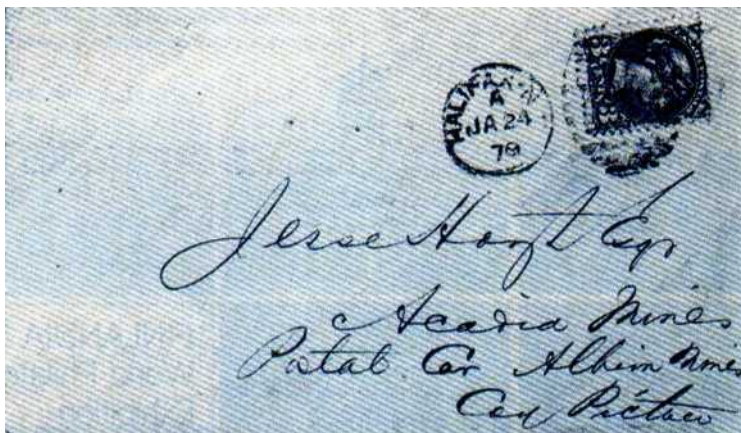 HALIFAX N.
A
JA 24
78
Jesse Hoyt Esqr
Acadia Mines
Postal Car Albion Mines
Coy Pictou